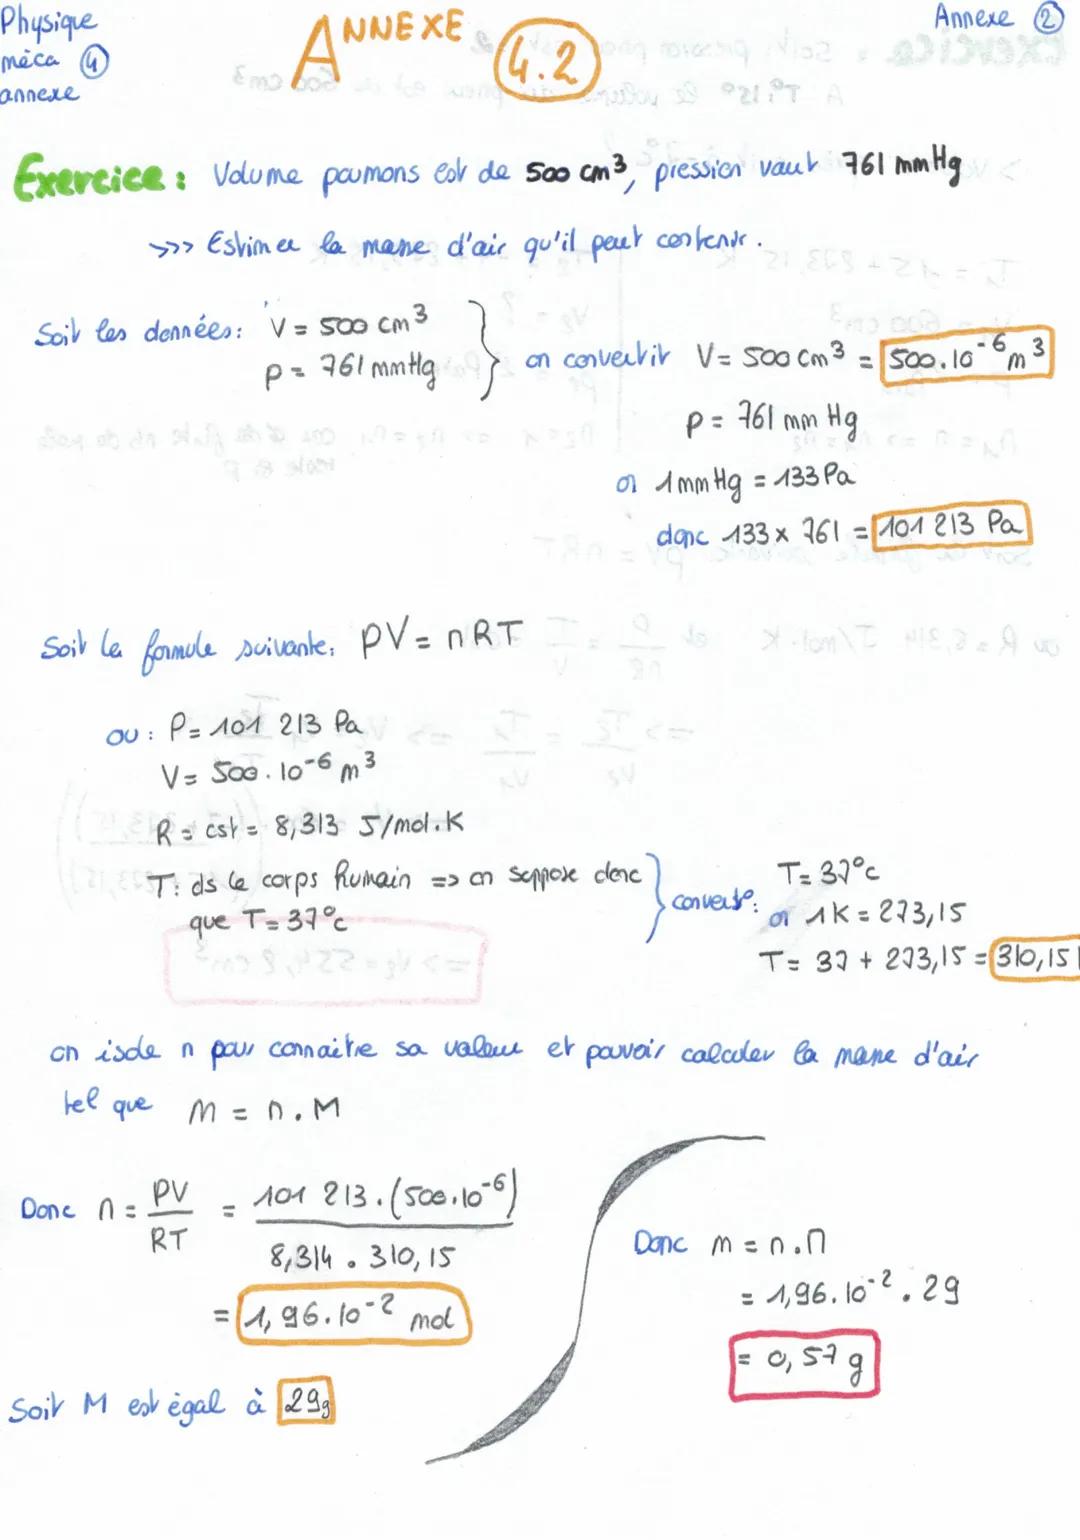 Physique
méca 4
annexe
ANNEXE 4.2
Annexe 2
Exercice : Volume poumons est de 500 cm³, pression vaut 761 mmHg
>>> Estimer la masse d'air qu'il peut contenir.
Soit les données : V = 500 cm³
p = 761 mmHg
on convertit V = 500 cm³ = 500.10⁻⁶ m³
p = 761 mm Hg
or 1mmHg = 133 Pa
donc 133 x 761 = 101 213 Pa
Soit la formule suivante, PV = nRT
ou : P = 101 213 Pa
V = 500.10⁻⁶ m³
R = cst = 8,313 J/mol.K
T : ds le corps humain => on suppose donc
que T = 37°c
convert° : T = 37°c
or 1K = 273,15
T = 37 + 273,15 = 310,15
on isole n pour connaitre sa valeur et pouvoir calculer la masse d'air
tel que m = n . M
Donc n = PV/RT = 101 213.(500.10⁻⁶)/8,314 . 310,15
= 1,96.10⁻² mol
Soit M est égal à 29g
Donc m = n.M
= 1,96.10⁻² . 29
= 0,57 g